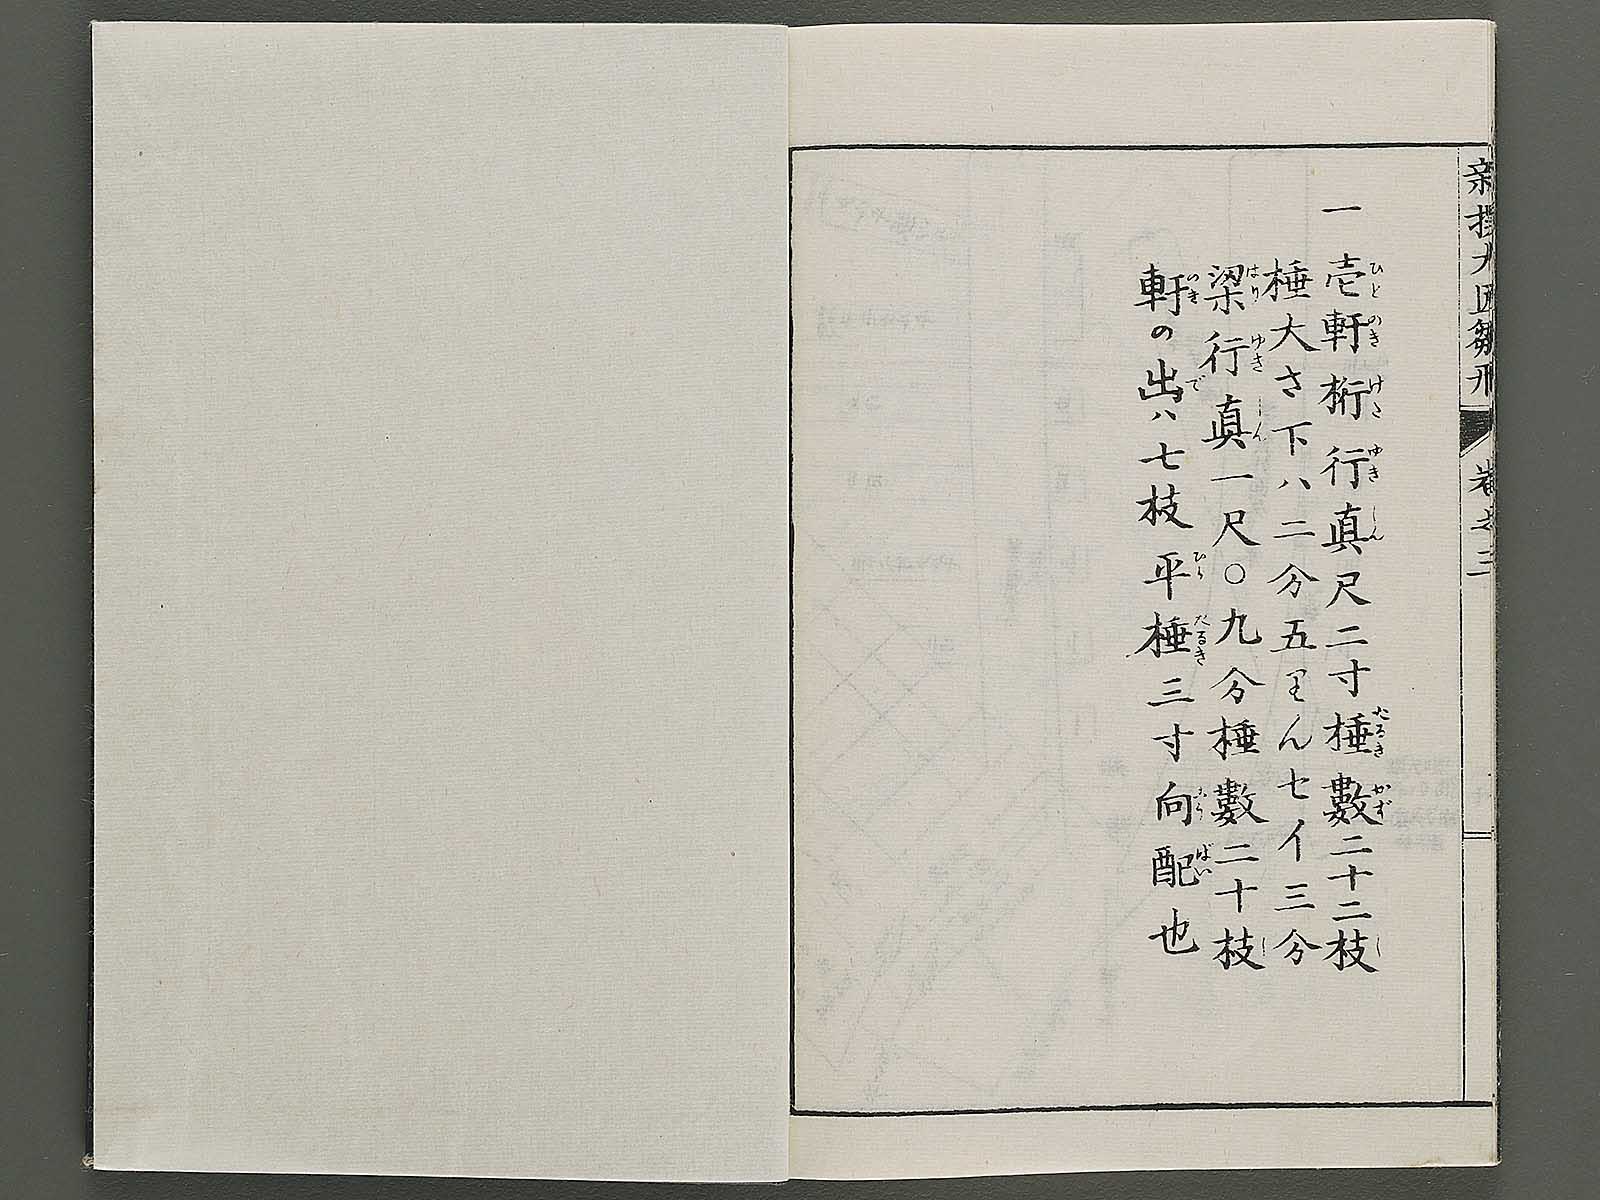 新撰大匠雛形
巻之三
一壱軒桁行真尺二寸棰數二十二枝
棰大さ下ハ二分五りんセイ三分
梁行真一尺〇九分棰數二十枝
軒の出ハ七枝平棰三寸向配也